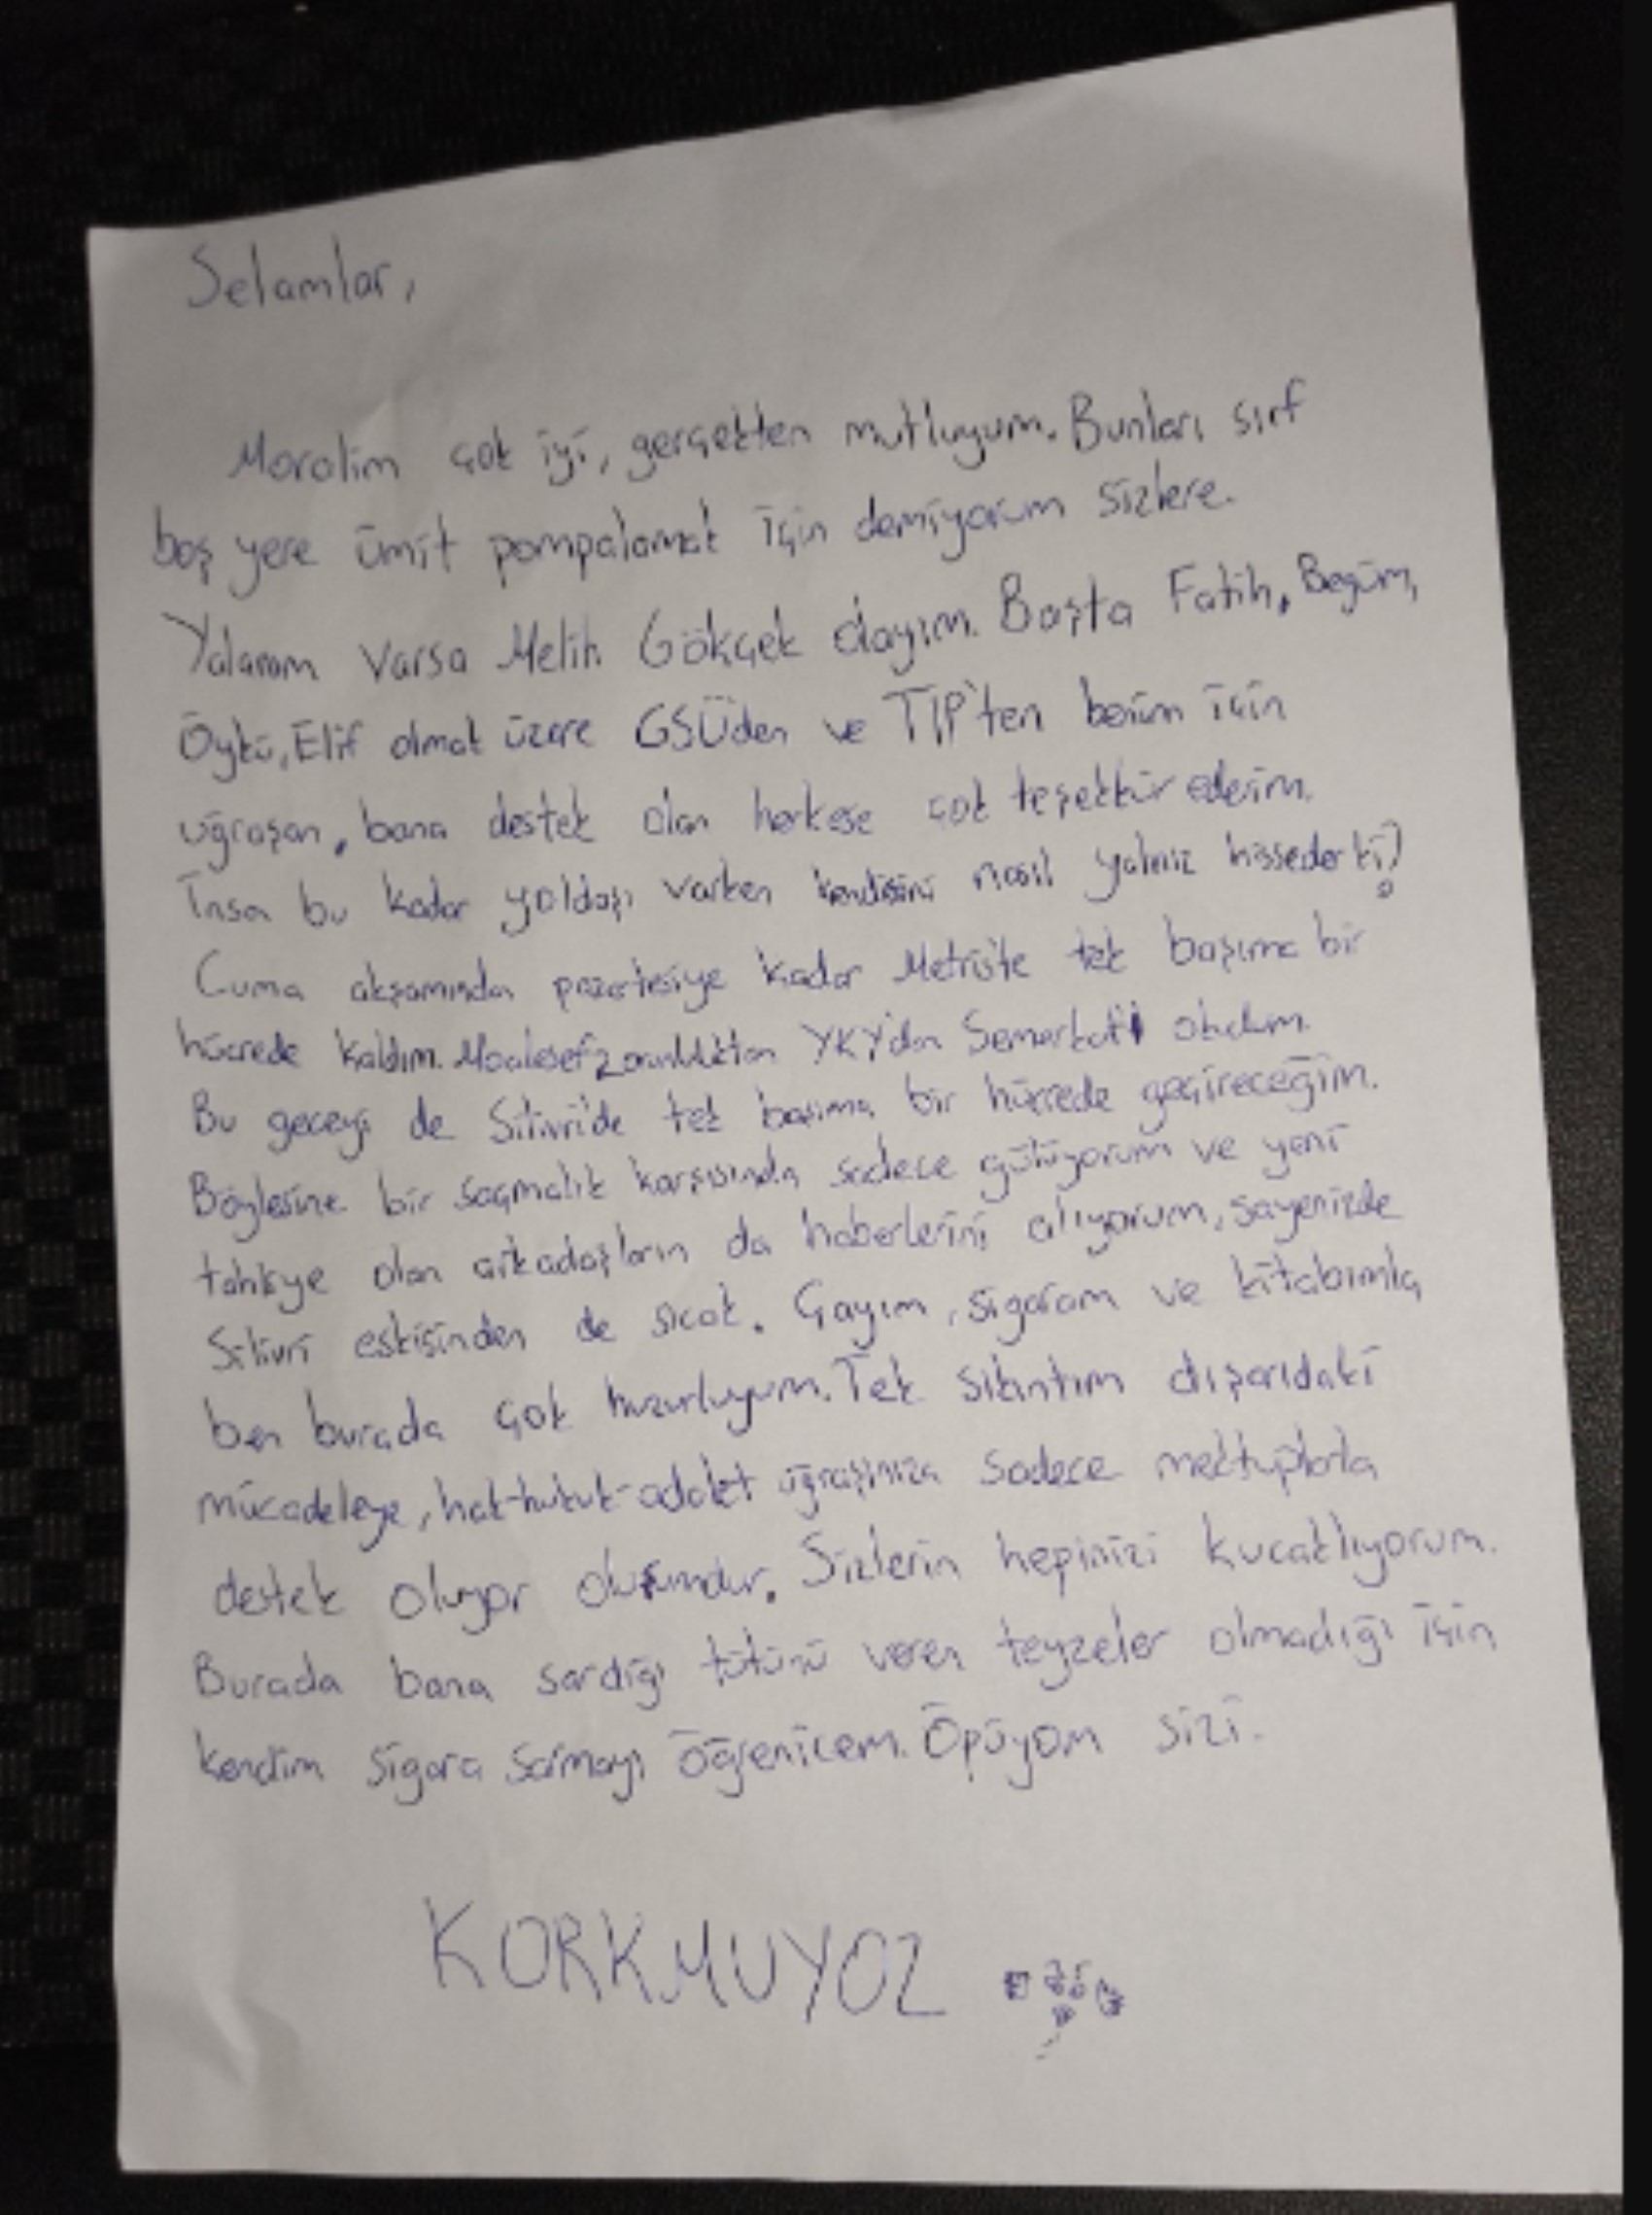 Selamlar,
Moralim çok iyi, gerçekten mutluyum. Bunları sırf
boş yere ümit pompalamak için demiyorum sizlere.
Yalanım varsa Melih Gökçek dayım. Başta Fatih, Begüm,
Öykü, Elif olmak üzere GSÜden ve TİP'ten benim için
uğraşan, bana destek olan herkese çok teşekkür ederim.
İnsan bu kadar yoldaşı varken kendisini nasıl yalnız hisseder ki?
Cuma akşamından pazartesiye kadar Metris'te tek başıma bir
hücrede kaldım. Maalesef zorunluluktan YKY'dan Semerkant'ı okudum.
Bu geceyi de Silivri'de tek başıma bir hücrede geçireceğim.
Böylesine bir saçmalık karşısında sadece gülüyorum ve yeni
tahliye olan arkadaşların da haberlerini alıyorum, sayenizde
Silivri eskisinden de sıcak. Çayım, sigaram ve kitabımla
ben burada çok huzurluyum. Tek sıkıntım dışarıdaki
mücadeleye, hak-hukuk-adalet uğraşınıza sadece mektuplarla
destek oluyor oluşumdur. Sizlerin hepinizi kucaklıyorum.
Burada bana sardığı tütünü veren teyzeler olmadığı için
kendim sigara sarmayı öğrenicem. Öpüyom sizi.
KORKMUYOZ